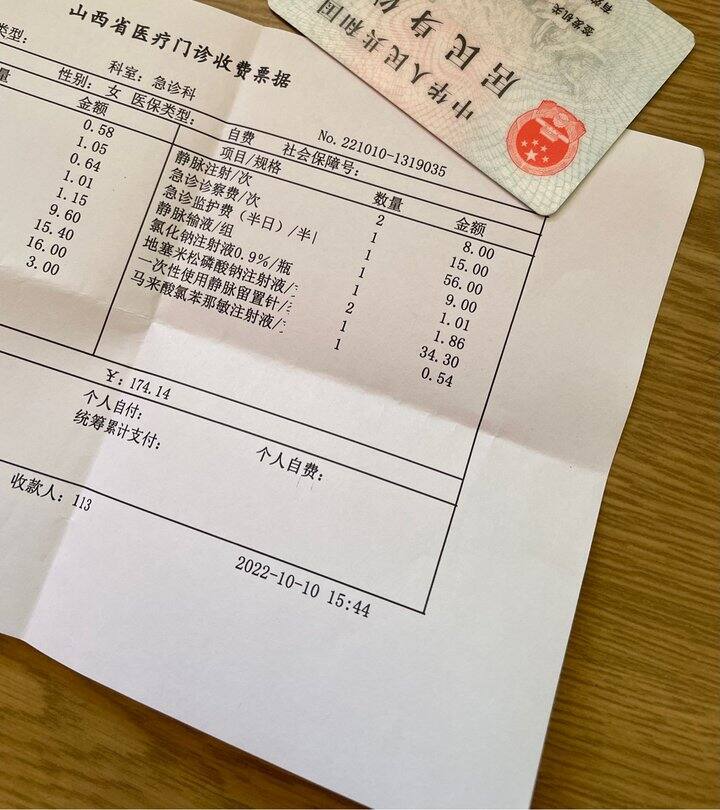 山西省医疗门诊收费票据
类型:
科室: 急诊科
量
性别: 女 医保类型:
自费
No. 221010-1319035
金额
社会保障号:
0.58
1.05
0.64
1.01
1.15
9.60
15.40
16.00
3.00
项目/规格 数量 金额
静脉注射/次 2 8.00
急诊诊察费/次 1 15.00
急诊监护费（半日）/半 1 56.00
静脉输液/组 1 9.00
氯化钠注射液0.9%/瓶 1 1.01
地塞米松磷酸钠注射液/ 2 1.86
一次性使用静脉留置针/ 1 34.30
马来酸氯苯那敏注射液/ 1 0.54
¥: 174.14
个人自付:
统筹累计支付:
个人自费:
收款人: 113
2022-10-10 15:44
中华人民共和国
居民身份
签发机关
有效